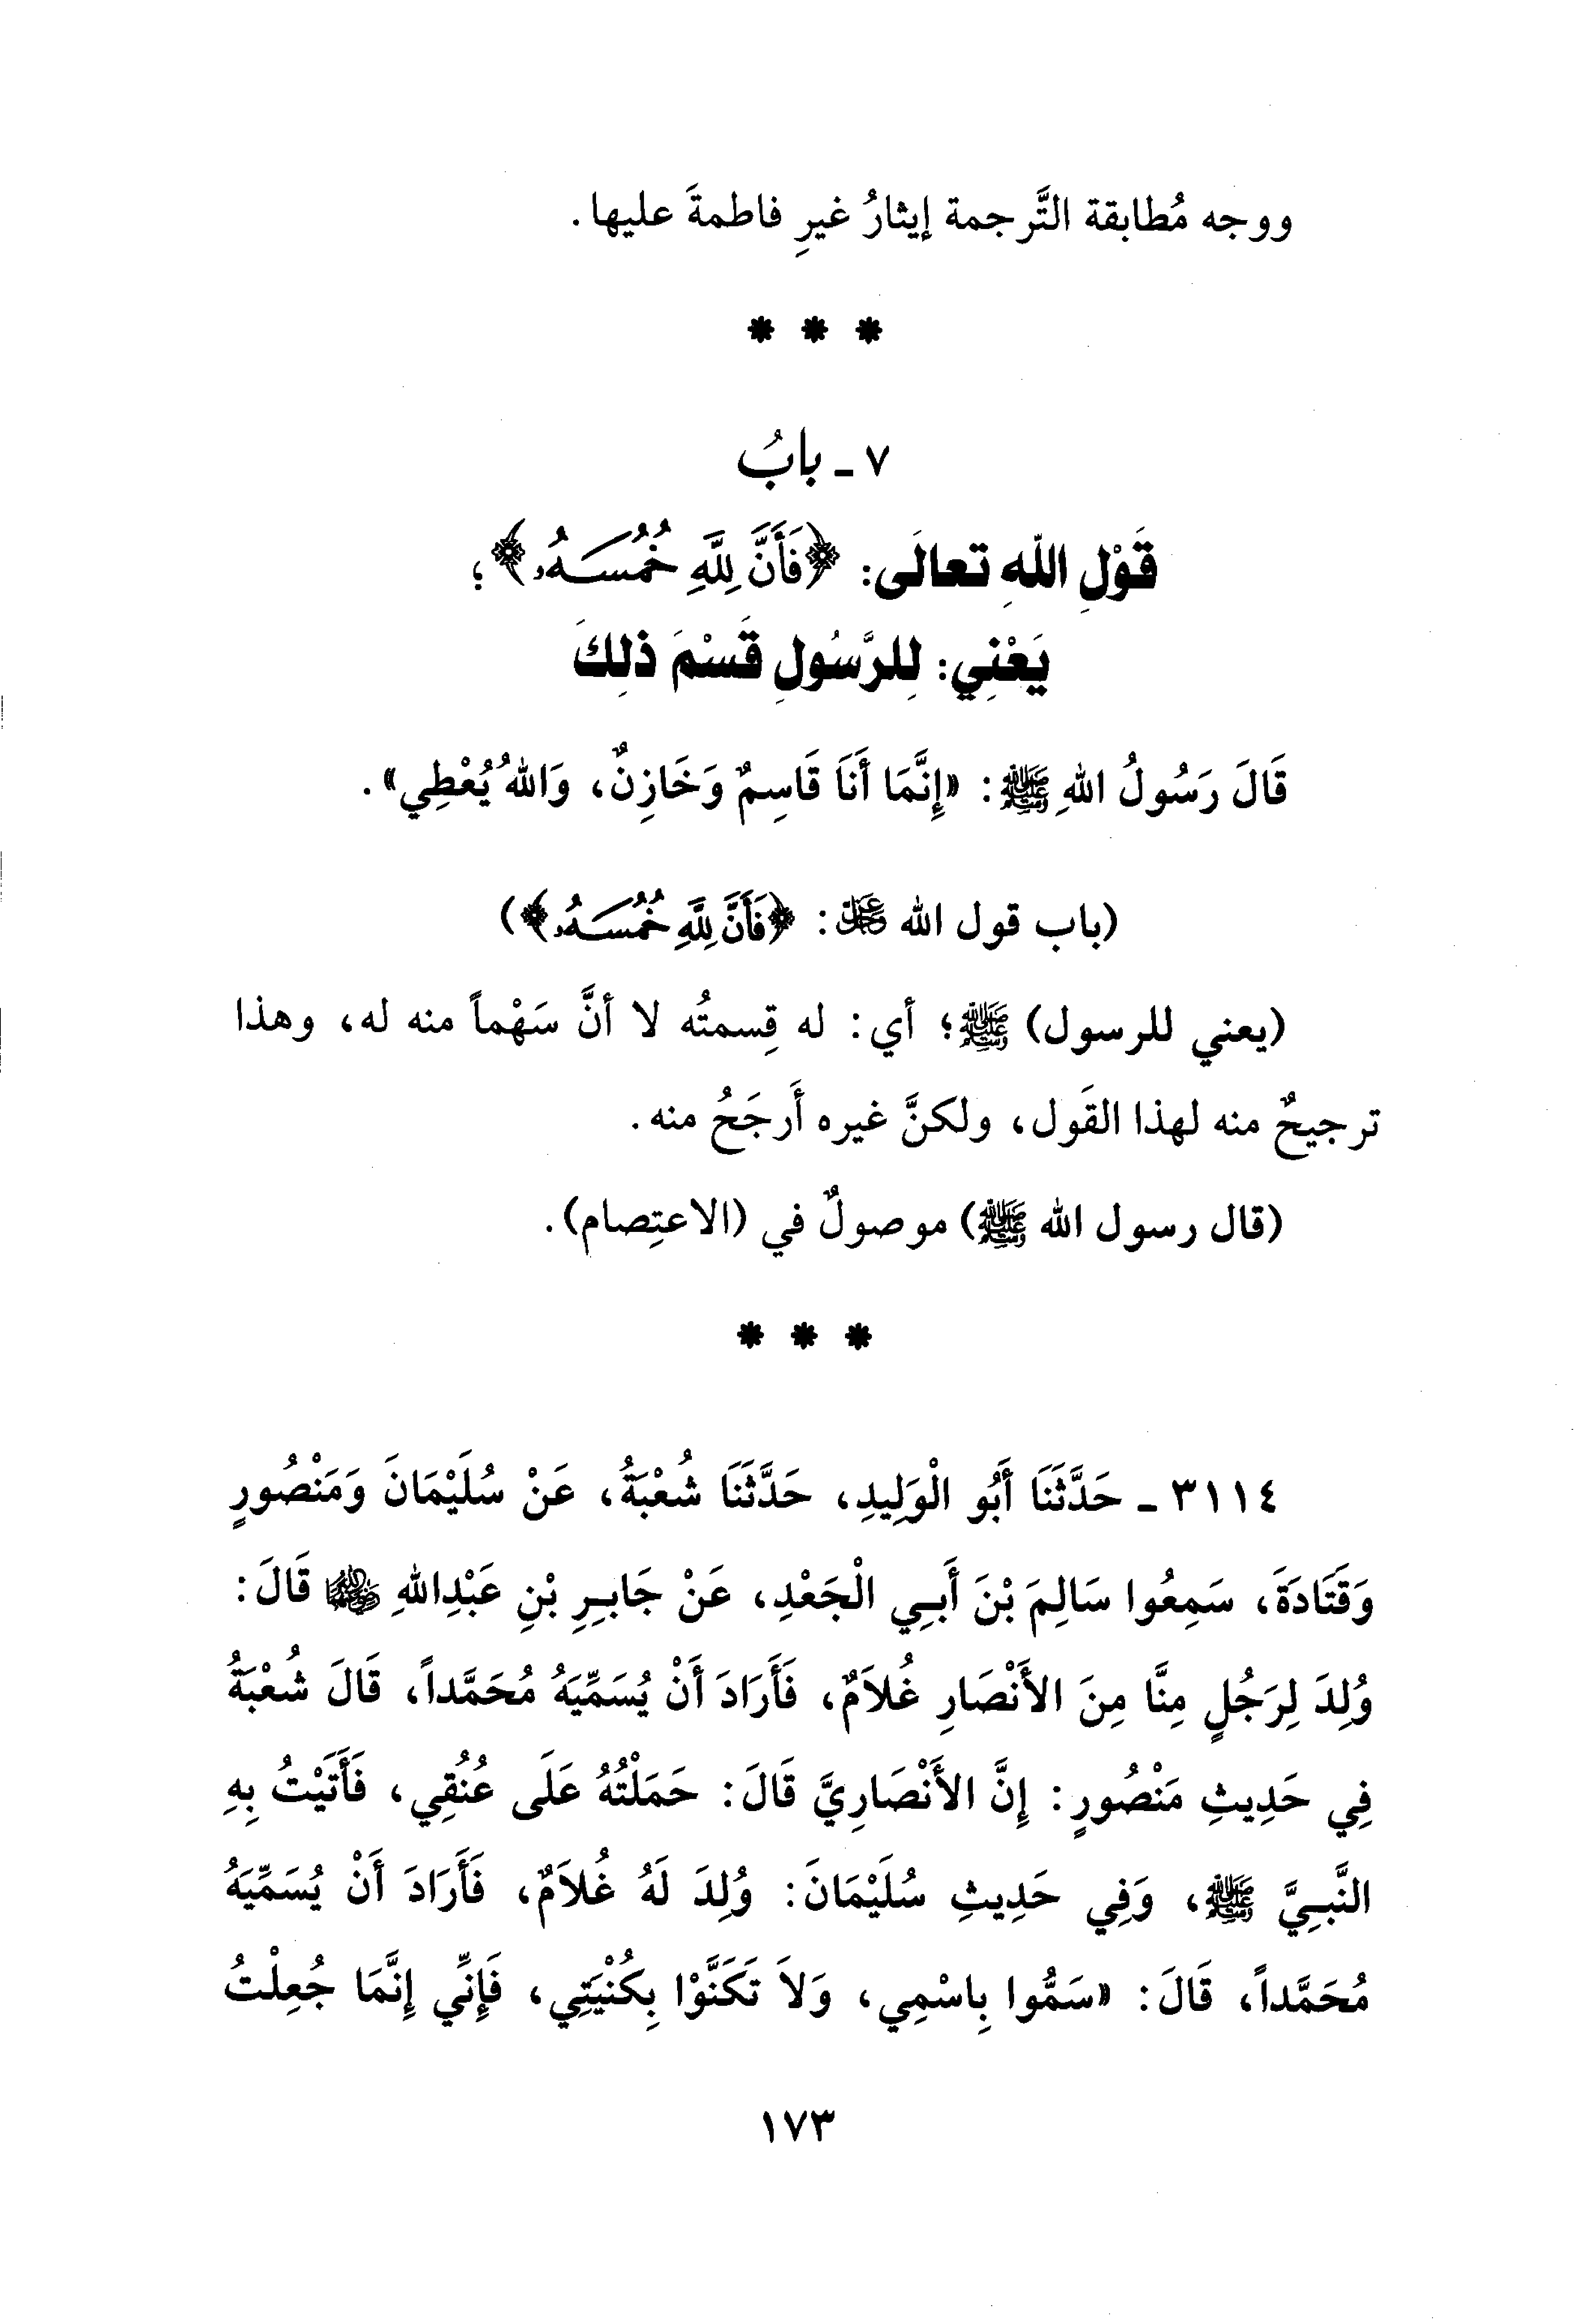 ووجه مُطابقة التَّرجمة إيثارُ غيرِ فاطمةَ عليها.
* * *
٧ ـ بابُ
قَوْلِ اللهِ تعالَى: ﴿فَأَنَّ لِلَّهِ خُمُسَهُۥ﴾؛
يَعْنِي: لِلرَّسُولِ قَسْمَ ذلِكَ
قَالَ رَسُولُ اللهِ ﷺ: «إِنَّمَا أَنَا قَاسِمٌ وَخَازِنٌ، وَاللهُ يُعْطِي».
(باب قول الله ﷿: ﴿فَأَنَّ لِلَّهِ خُمُسَهُۥ﴾)
(يعني للرسول) ﷺ؛ أي: له قِسمتُه لا أنَّ سَهْماً منه له، وهذا
ترجيحٌ منه لهذا القَول، ولكنَّ غيره أَرجَحُ منه.
(قال رسول الله ﷺ) موصولٌ في (الاعتِصام).
* * *
٣١١٤ ـ حَدَّثَنَا أَبُو الْوَلِيدِ، حَدَّثَنَا شُعْبَةُ، عَنْ سُلَيْمَانَ وَمَنْصُورٍ
وَقَتَادَةَ، سَمِعُوا سَالِمَ بْنَ أَبِي الْجَعْدِ، عَنْ جَابِرِ بْنِ عَبْدِاللهِ ﵁ قَالَ:
وُلِدَ لِرَجُلٍ مِنَّا مِنَ الأَنْصَارِ غُلاَمٌ، فَأَرَادَ أَنْ يُسَمِّيَهُ مُحَمَّداً، قَالَ شُعْبَةُ
فِي حَدِيثِ مَنْصُورٍ: إِنَّ الأَنْصَارِيَّ قَالَ: حَمَلْتُهُ عَلَى عُنُقِي، فَأَتَيْتُ بِهِ
النَّبِيَّ ﷺ، وَفِي حَدِيثِ سُلَيْمَانَ: وُلِدَ لَهُ غُلاَمٌ، فَأَرَادَ أَنْ يُسَمِّيَهُ
مُحَمَّداً، قَالَ: «سَمُّوا بِاسْمِي، وَلاَ تَكَنَّوْا بِكُنْيَتِي، فَإِنِّي إِنَّمَا جُعِلْتُ
١٧٣